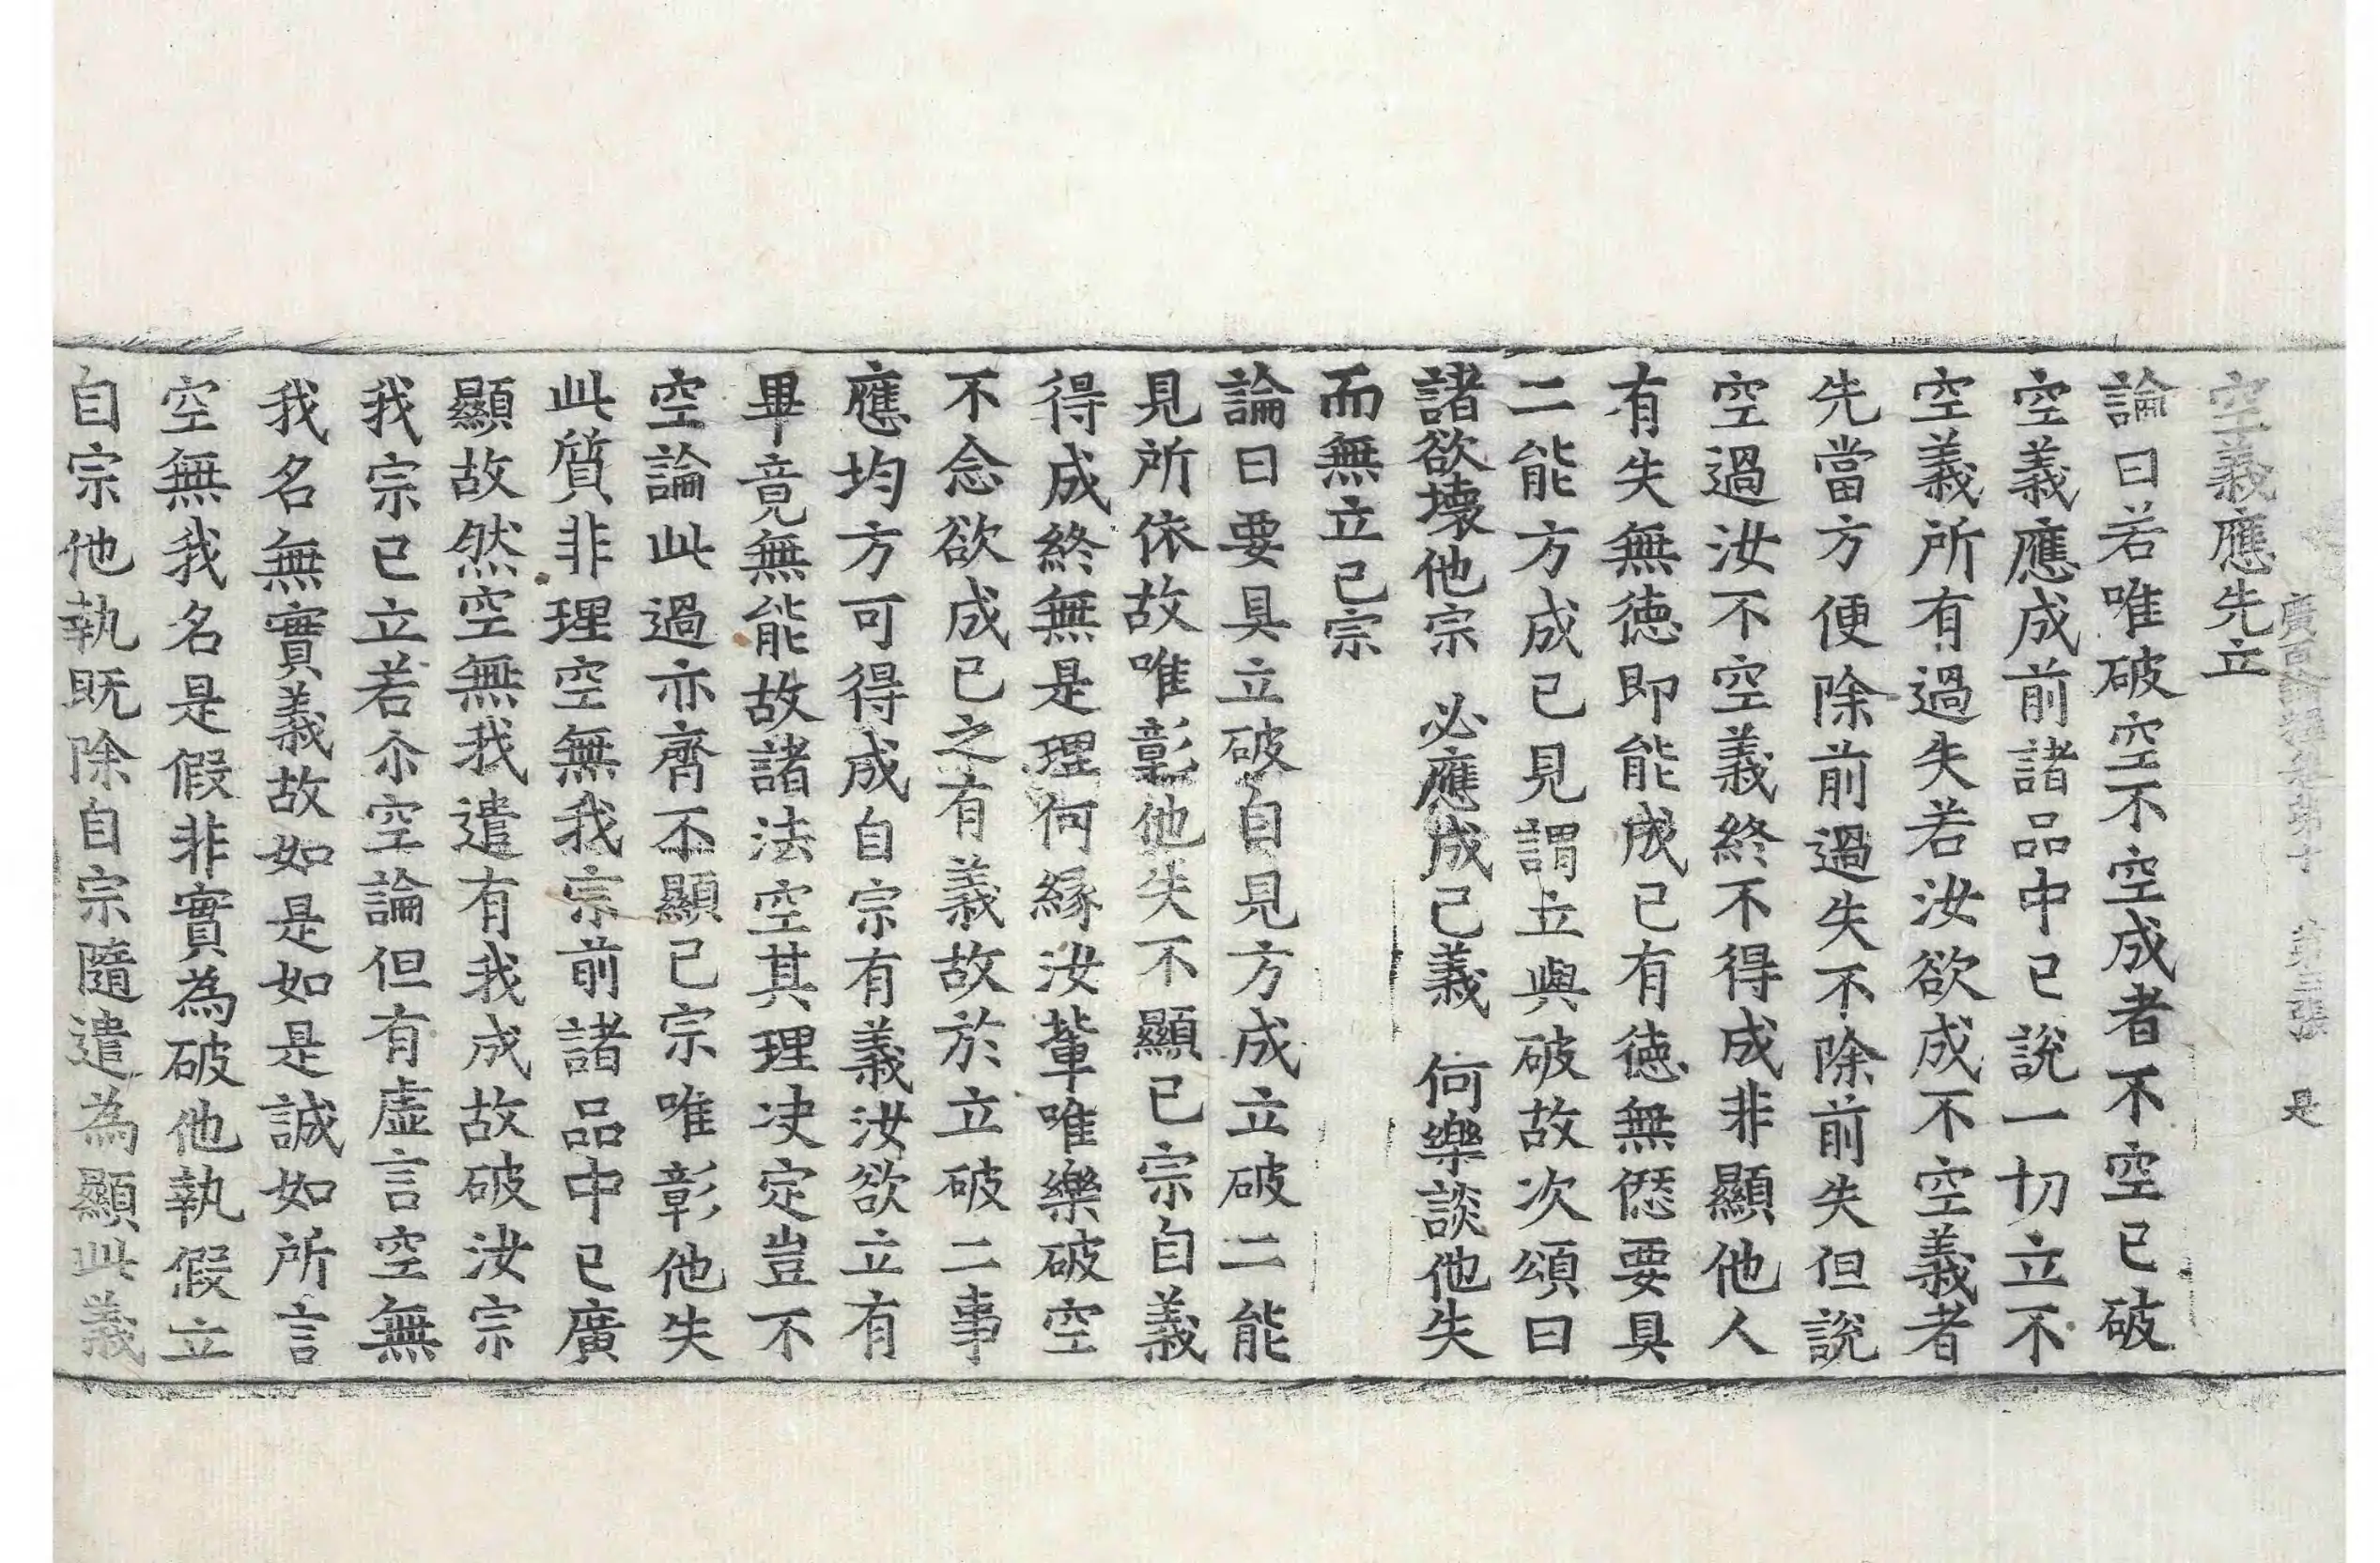 廣百論釋卷第十 第三張 是
空義應先立
論曰若唯破空不空成者不空已破
空義應成前諸品中已說一切立不
空義所有過失若汝欲成不空義者
先當方便除前過失不除前失但說
空過汝不空義終不得成非顯他人
有失無德即能成己有德無愆要具
二能方成已見謂立與破故次頌曰
諸欲壞他宗 必應成己義 何樂談他失
而無立己宗
論曰要具立破自見方成立破二能
見所依故唯彰他失不顯已宗自義
得成終無是理何緣汝輩唯樂破空
不念欲成已之有義故於立破二事
應均方可得成自宗有義汝欲立有
畢竟無能故諸法空其理決定豈不
空論此過亦齊不顯已宗唯彰他失
此質非理空無我宗前諸品中已廣
顯故然空無我遣有我成故破汝宗
我宗已立若尒空論但有虛言空無
我名無實義故如是如是誠如所言
空無我名是假非實為破他執假立
自宗他執既除自宗隨遣為顯此義